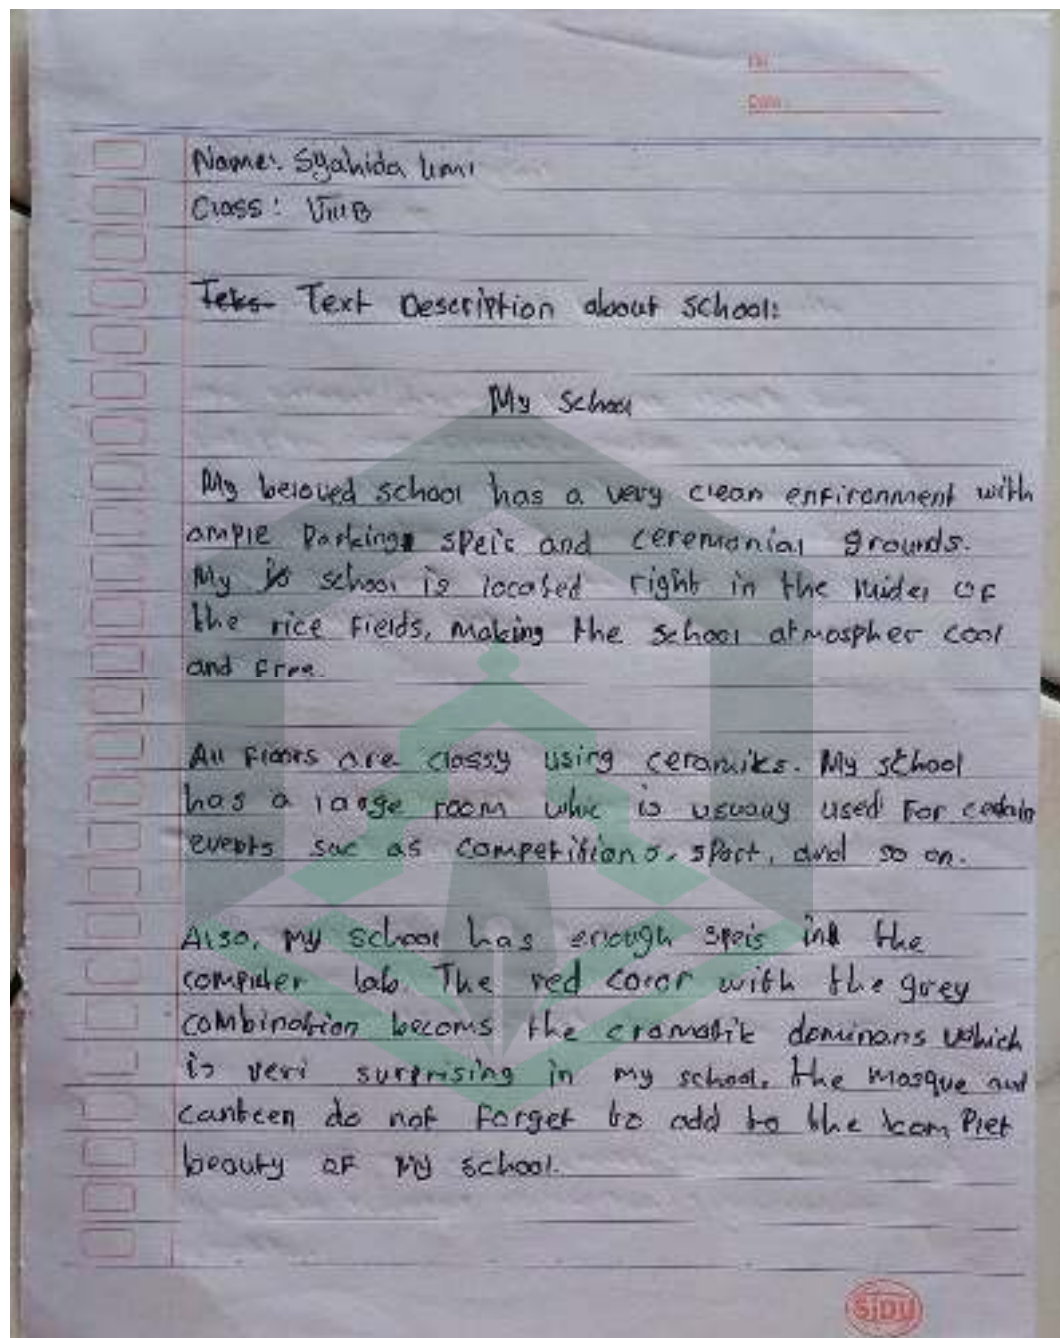 No :
Date :
Name: Syahida Umi
Class : VIII B
Teks Text Description about school:
My School
My beloved school has a very clean enfironment with
ample Parking speis and ceremonial grounds.
My is school is located right in the mider of
the rice fields, making the school atmospher cool
and free.
All floors are classy using ceramiks. My school
has a large room whic is usualy used for certain
events suc as competitions, sport, and so on.
Also, my school has enough speis in the
computer lab. The red coror with the grey
combination becoms the cromatik dominans which
is veri surprising in my school. the mosque and
canteen do not forget to add to the komplet
beauty of my school.
SiDU